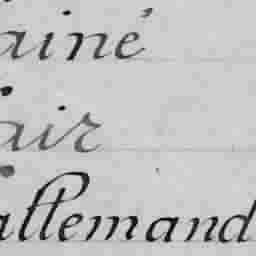 ainé
air
allemand